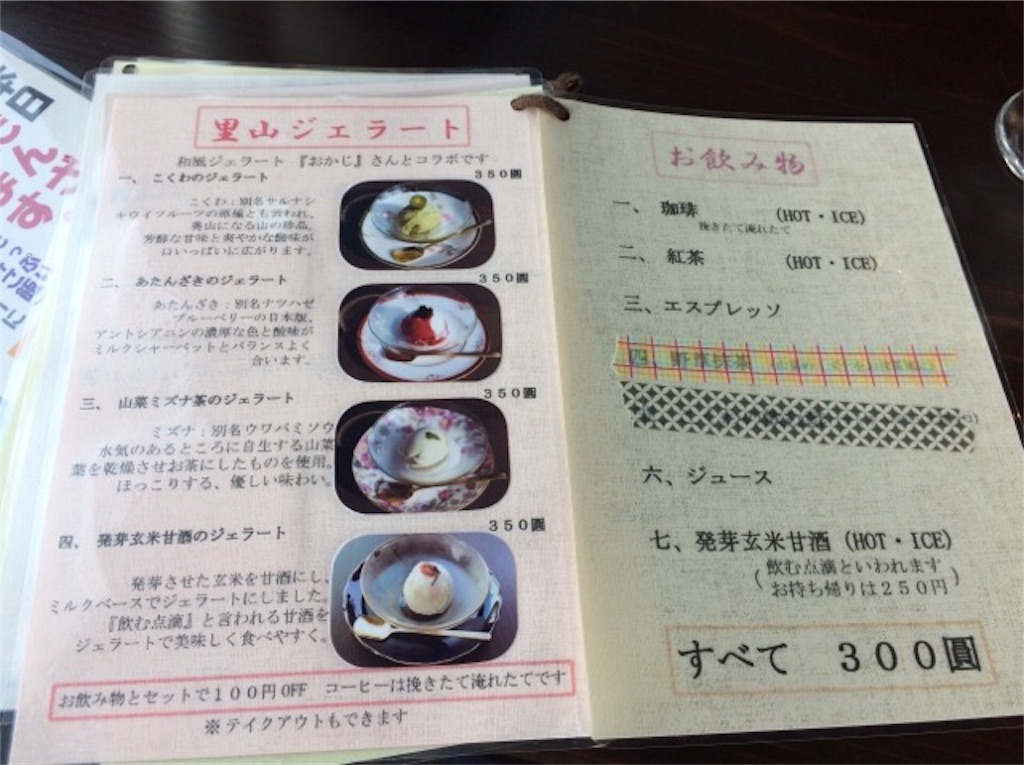 里山ジェラート
和風ジェラート 『おかじ』さんとコラボです
一、 こくわのジェラート 350圓
こくわ：別名サルナシ
キウイフルーツの原種とも云われ、
奥山になる山の珍品。
芳醇な甘味と爽やかな酸味が
口いっぱいに広がります。
二、 あたんざきのジェラート 350圓
あたんざき：別名ナツハゼ
ブルーベリーの日本版。
アントシアニンの濃厚な色と酸味が
ミルクシャーベットとバランスよく
合います。
三、 山菜ミズナ茶のジェラート 350圓
ミズナ：別名ウワバミソウ
水気のあるところに自生する山菜
葉を乾燥させお茶にしたものを使用。
ほっこりする、優しい味わい。
四、 発芽玄米甘酒のジェラート 350圓
発芽させた玄米を甘酒にし、
ミルクベースでジェラートにしました。
『飲む点滴』と言われる甘酒を
ジェラートで美味しく食べやすく。
お飲み物とセットで１００円OFF コーヒーは挽きたて淹れたてです
※テイクアウトもできます
お飲み物
一、 珈琲 (HOT・ICE)
挽きたて淹れたて
二、 紅茶 (HOT・ICE)
三、エスプレッソ
四、
六、ジュース
七、発芽玄米甘酒 (HOT・ICE)
(飲む点滴といわれます
お持ち帰りは２５０円)
すべて ３００圓